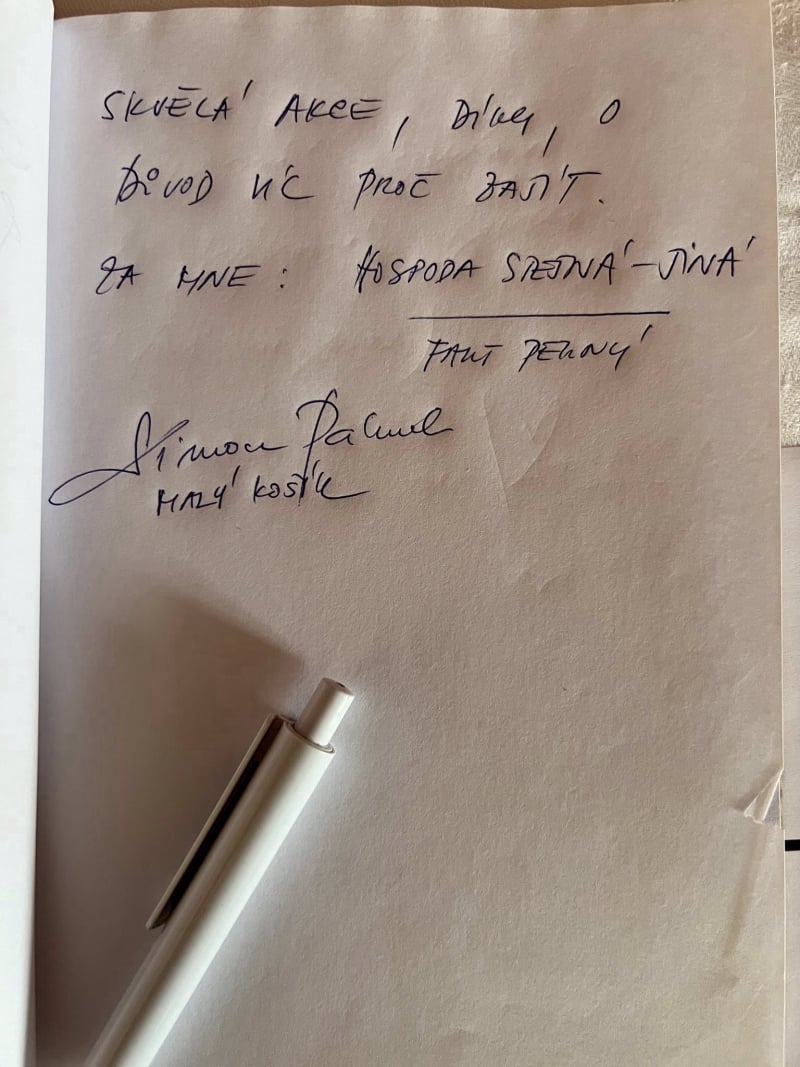 SKVĚLÁ AKCE, DÍKY, O
DŮVOD VÍC PROČ ZAJÍT.
ZA MNE: HOSPODA STEJNÁ-JINÁ
FAKT PEKNÝ
Simon
MALÝ KOŠÍK